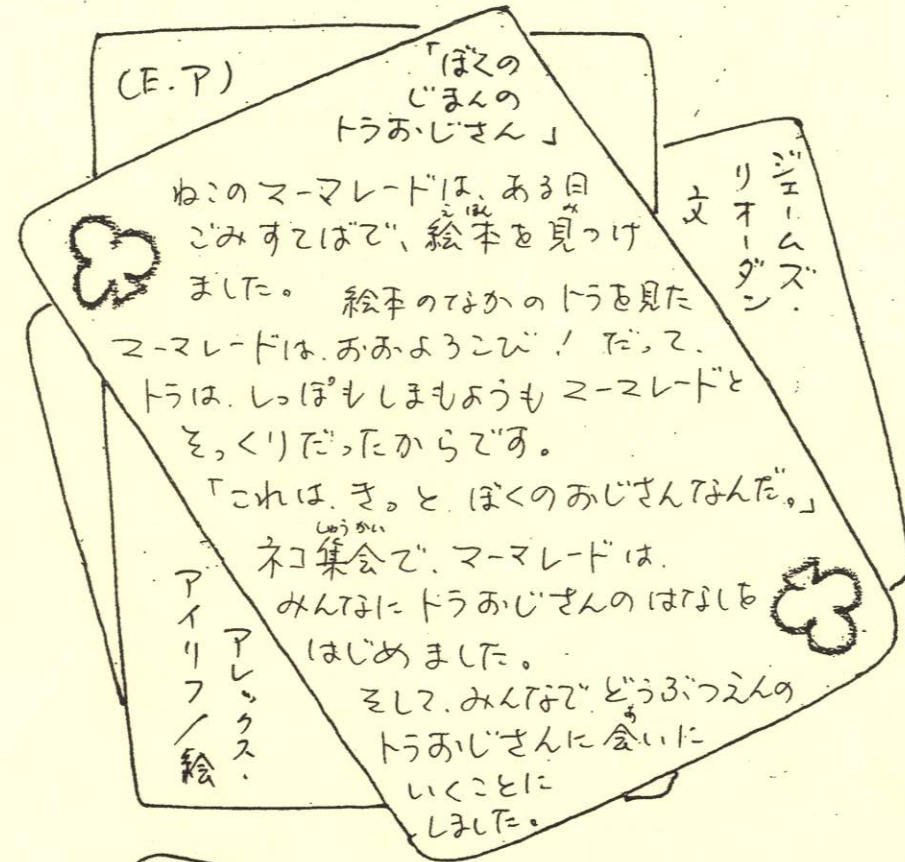 (E.ア)
「ぼくの
じまんの
トラおじさん」
ねこのマーマレードは、ある日
ごみすてばで、絵本を見つけ
ました。 絵本のなかのトラを見た
マーマレードは、おおよろこび! だって、
トラは、しっぽもしまもようもマーマレードと
そっくりだったからです。
「これは、きっと、ぼくのおじさんなんだ。」
ネコ集会で、マーマレードは、
みんなにトラおじさんのはなしを
はじめました。
そして、みんなで、どうぶつえんの
トラおじさんに会いに
いくことに
しました。
ジェームズ・
リオーダン
文
アレックス・
アイリフ/絵